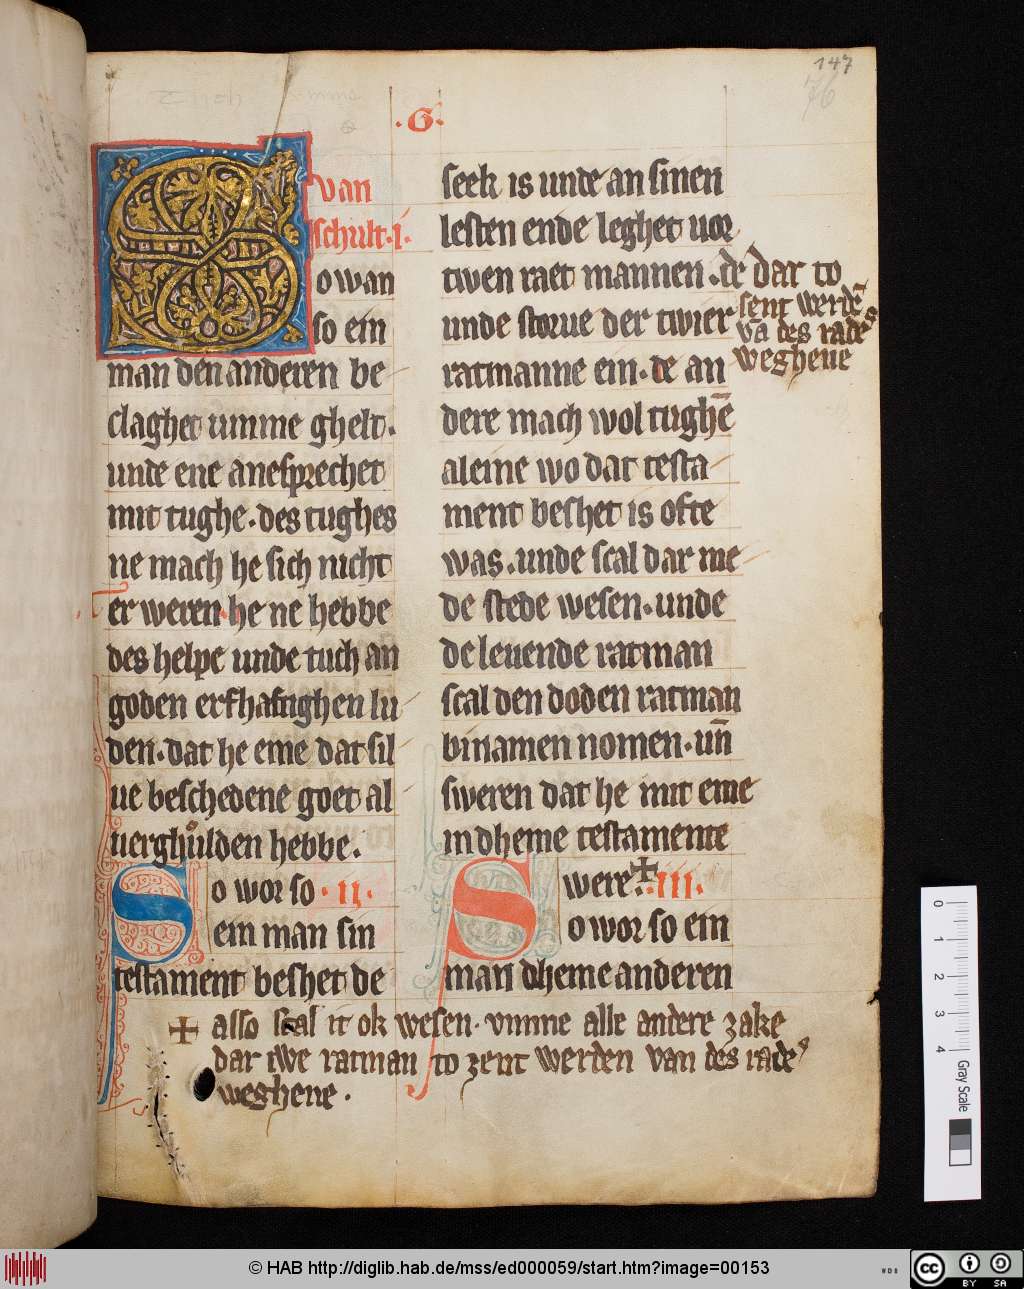 147
76
·G·
van
schult·i·
So wan
so ein
man den anderen be
claghet umme ghelt.
unde ene anesprechet
mit tughe. des tughes
ne mach he sich nicht
er weren. he ne hebbe
des helpe unde tuch an
goden erfhaftighen lu
den. dat he eme dat sil
ue beschedene goet al
uerghůlden hebbe.
So wor so ·II·
ein man sin
testament beshet de
seek is unde an sinen
lesten ende leghet uor
twen raet mannen. de dar to
sent werdē
vā des rades
weghene
unde storue der twier
ratmanne ein. de an
dere mach wol tughē
aleine wo dat testa
ment beshet is ofte
was. unde scal dar me
de stede wesen. unde
de leuende ratman
scal den doden ratman
binamen nomen. uñ
sweren dat he mit eme
in dheme testamente
were. ✝ ·III·
So wor so ein
man dheme anderen
✝ asso scal it ok wesen. vmme alle andere zake
dar twe ratman to zent werden van des rades
weghene.
0
1
2
3
4
Gray Scale
© HAB http://diglib.hab.de/mss/ed000059/start.htm?image=00153
WDB
cc BY SA